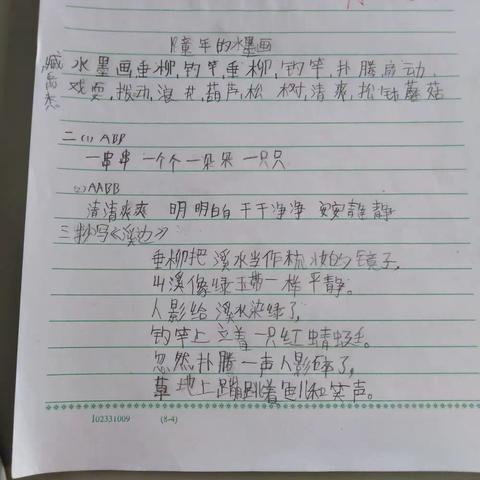 18童年的水墨画
水墨画,垂柳,钓竿,垂柳,钓竿,扑腾,扇动
戏耍,拨动,浪花,葫芦,松树,清爽,松针,蘑菇
二(1)ABB
一串串 一个个 一朵朵 一只只
(2)AABB
清清爽爽 明明白白 干干净净 安安静静
三抄写《溪边》
垂柳把溪水当作梳妆的镜子,
山溪像绿玉带一样平静。
人影给溪水染绿了,
钓竿上立着一只红蜻蜓。
忽然扑腾一声人影碎了,
草地上蹦跳着鱼儿和笑声。
102331009 (8-4)